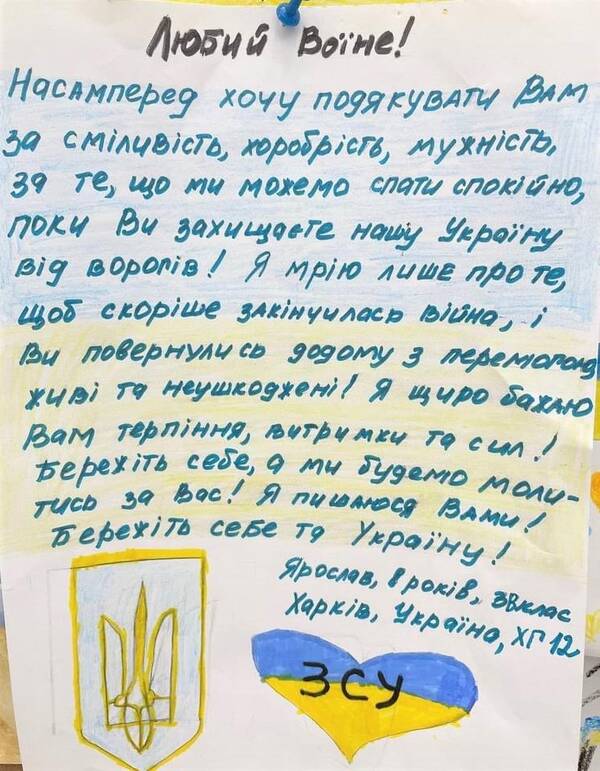 Любий Воїне!
Насамперед хочу подякувати Вам
за сміливість, хоробрість, мужність,
за те, що ми можемо спати спокійно,
поки Ви захищаєте нашу Україну
від ворогів! Я мрію лише про те,
щоб скоріше закінчилась війна, і
Ви повернулись додому з перемогою
живі та неушкоджені! Я щиро бажаю
Вам терпіння, витримки та сил!
Бережіть себе, а ми будемо моли-
тись за Вас! Я пишаюся Вами!
Бережіть себе та Україну!
Ярослав, 8 років, 3В клас
Харків, Україна, ХГ 12
ЗСУ